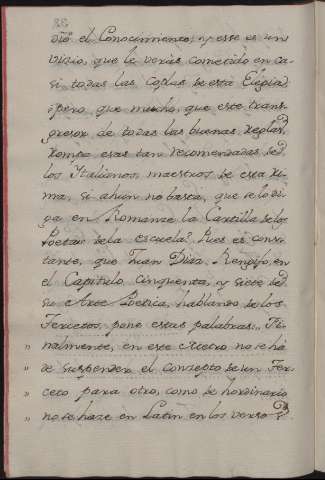 88
dio el Conocimiento, y esse es un
vizio, que le verás cometido en ca-
si todas las coplas de esta Elegia,
¿pero que mucho, que este trans-
gresor de todas las buenas reglas,
rompa esas tan recomendadas de
los Italianos, maestros de esta ri-
ma, si ahún no basta, que se lo di-
ga en Romanze la Cartilla de los
Poetas de la escuela? Pues es cons-
tante, que Juan Diaz Rengifo, en
el Capitulo cinquenta, y siete de
su Arte Poetica, hablando de los
Tercetos, pone estas palabras: Fi-
„ nalmente, en este Metro no se ha
„ de suspender el conzepto de un Ter-
„ ceto para otro, como de hordinario
„ no se haze en Latin en los verso